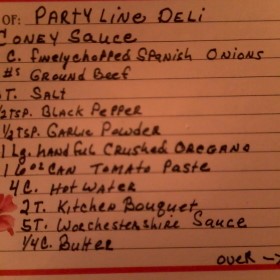 OF: PARTY LINE DELI
CONEY SAUCE
C. finely chopped Spanish Onions
#s Ground Beef
T. Salt
½ TSP. Black Pepper
½ TSP. Garlic Powder
1 Lg. handful Crushed OREGANO
1 6oz CAN Tomato Paste
4 C. Hot Water
2 T. Kitchen Bouquet
5T. Worchestershire Sauce
1/4 C. Butter
over →